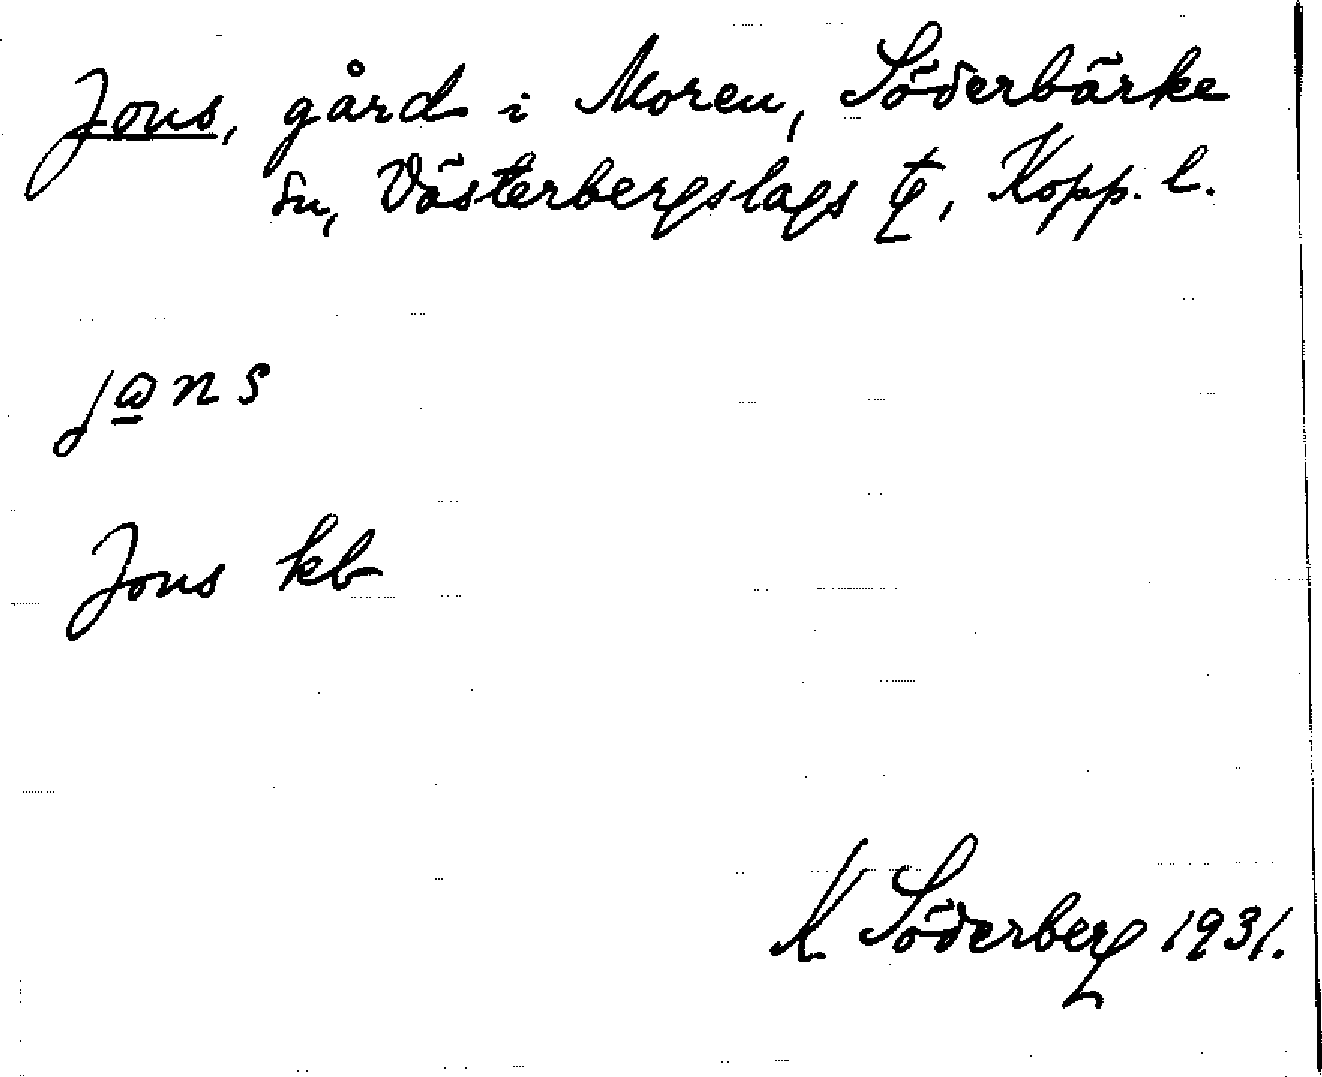 Jons, gård i Moren, Söderbärke
sn, Västerbergslags
, Kopp. l.
Jons kb
K Söderberg 1931.